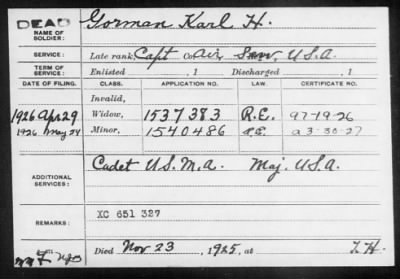 DEAD Gorman Karl H.
NAME OF SOLDIER:
SERVICE: Late rank, Capt Co. Air Serv., U.S.A.
TERM OF SERVICE: Enlisted , 1 Discharged , 1
DATE OF FILING. CLASS. APPLICATION NO. LAW. CERTIFICATE NO.
Invalid,
1926 Apr 29 Widow, 1537383 R.E. 9-19-26
1926 May 24 Minor, 1540486 R.E. a 3-30-27
ADDITIONAL SERVICES: Cadet U.S.M.A. Maj. U.S.A.
REMARKS: XC 651 327
Died Nov 23, 1925, at I.H.